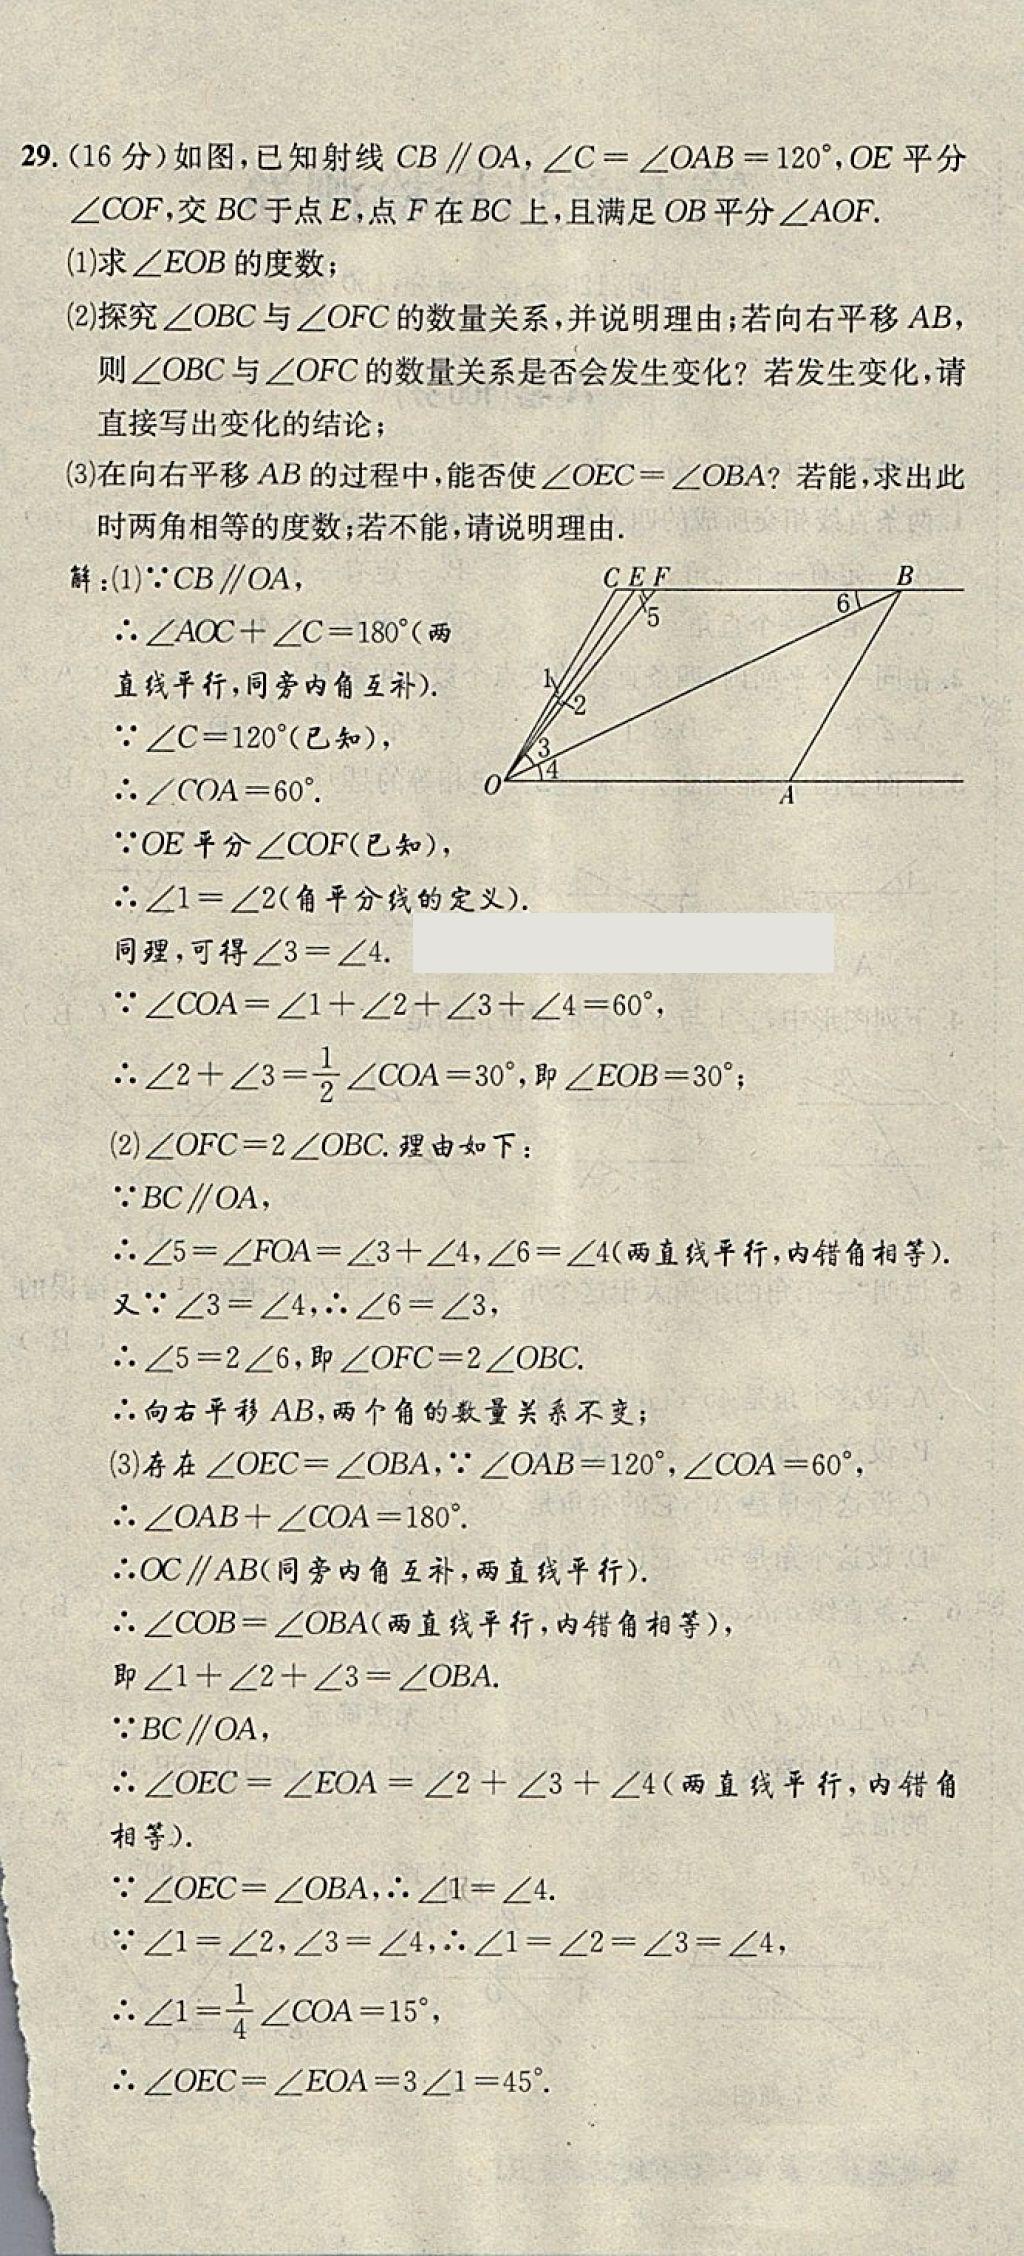 29.(16 分)如图,已知射线 CB∥OA,∠C=∠OAB=120°,OE 平分
∠COF,交 BC 于点 E,点 F 在 BC 上,且满足 OB 平分∠AOF.
(1)求∠EOB 的度数;
(2)探究∠OBC 与∠OFC 的数量关系,并说明理由;若向右平移 AB,
则∠OBC 与∠OFC 的数量关系是否会发生变化? 若发生变化,请
直接写出变化的结论;
(3)在向右平移 AB 的过程中,能否使∠OEC=∠OBA? 若能,求出此
时两角相等的度数;若不能,请说明理由.
解:(1)∵CB∥OA,
∴∠AOC+∠C=180°(两
直线平行,同旁内角互补).
∵∠C=120°(已知),
∴∠COA=60°.
C E F B
5 6
1 2
3 4
O A
∵OE 平分∠COF(已知),
∴∠1=∠2(角平分线的定义).
同理,可得∠3=∠4.
∵∠COA=∠1+∠2+∠3+∠4=60°,
∴∠2+∠3=1/2∠COA=30°,即∠EOB=30°;
(2)∠OFC=2∠OBC.理由如下:
∵BC∥OA,
∴∠5=∠FOA=∠3+∠4,∠6=∠4(两直线平行,内错角相等).
又∵∠3=∠4,∴∠6=∠3,
∴∠5=2∠6,即∠OFC=2∠OBC.
∴向右平移 AB,两个角的数量关系不变;
(3)存在∠OEC=∠OBA,∵∠OAB=120°,∠COA=60°,
∴∠OAB+∠COA=180°.
∴OC∥AB(同旁内角互补,两直线平行).
∴∠COB=∠OBA(两直线平行,内错角相等),
即∠1+∠2+∠3=∠OBA.
∵BC∥OA,
∴∠OEC=∠EOA=∠2+∠3+∠4(两直线平行,内错角
相等).
∵∠OEC=∠OBA,∴∠1=∠4.
∵∠1=∠2,∠3=∠4,∴∠1=∠2=∠3=∠4,
∴∠1=1/4∠COA=15°,
∴∠OEC=∠EOA=3∠1=45°.